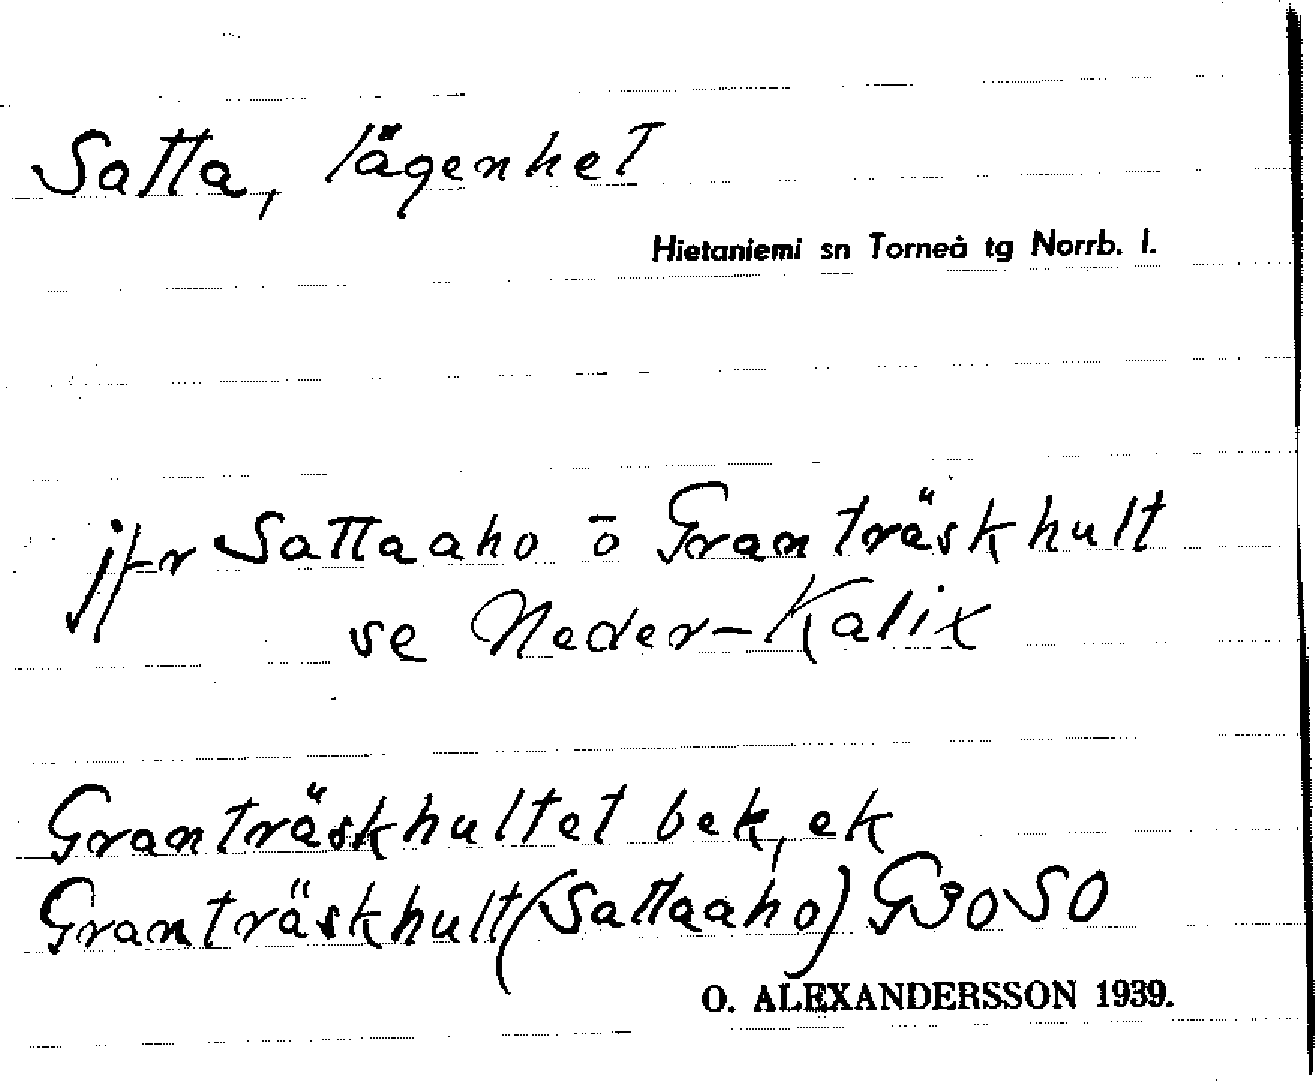 Satta, lägenhet
Hietaniemi sn Torneå tg Norrb. l.
jfr Sattaaho ō Granträskhult
se Neder-Kalix
Granträskhultet bek, ek
Granträskhult (Sattaaho) G30SO
O. ALEXANDERSSON 1939.